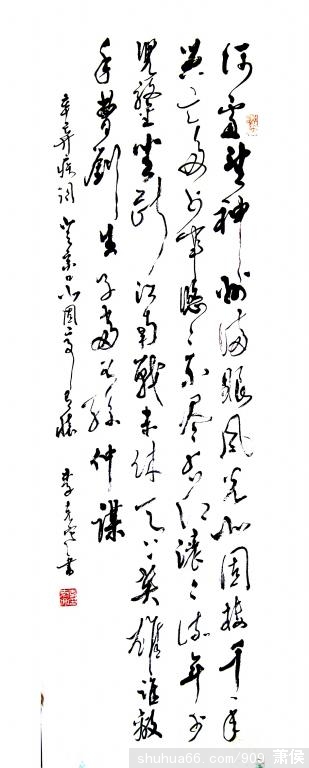 何處望神州满眼風光北固楼千
興亡多少事悠々不尽長江滚々流年少
兜鍪坐断江南戰未休天下英雄誰敵
手曹劉生子當如孫仲謀
辛弃疾词 登京口北固亭有懷 李書
shuhua66.com/909 萧侯